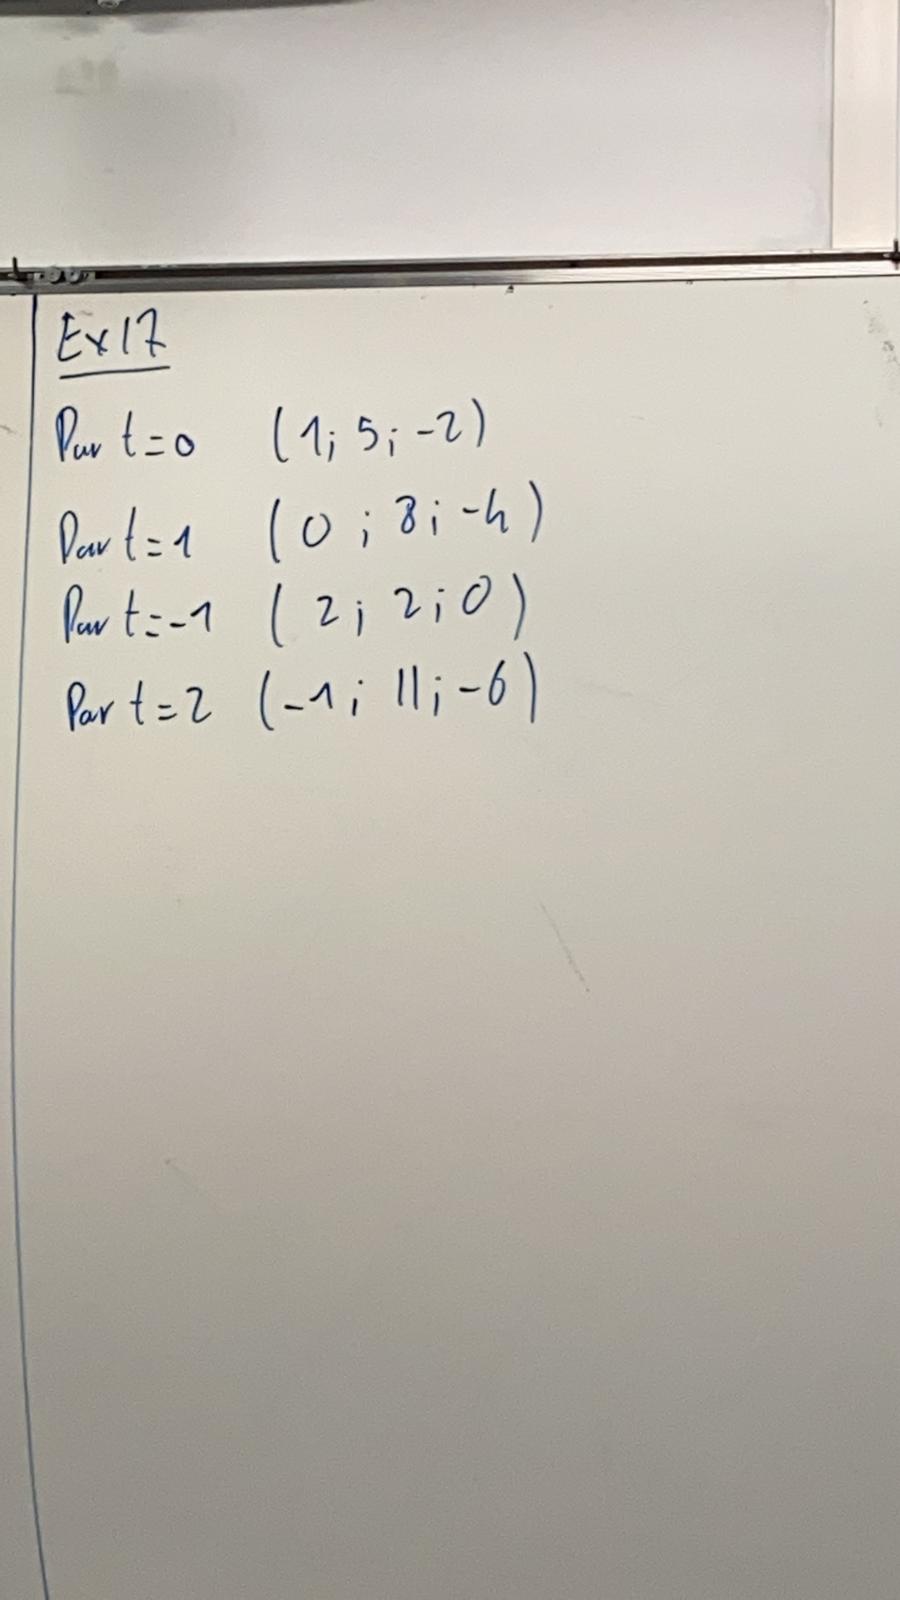 Ex 17
Pour t=0 (1; 5; -2)
Pour t=1 (0; 8; -4)
Pour t=-1 (2; 2; 0)
Pour t=2 (-1; 11; -6)